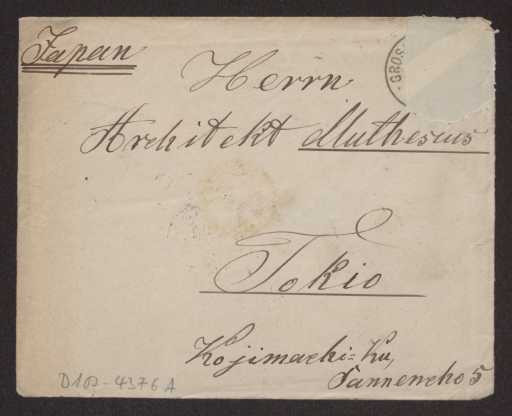 Japan
GROS
Herrn
Architekt Muthesius
Tokio
Kojimachi=Ku,
Sannencho 5
D102-4376 A